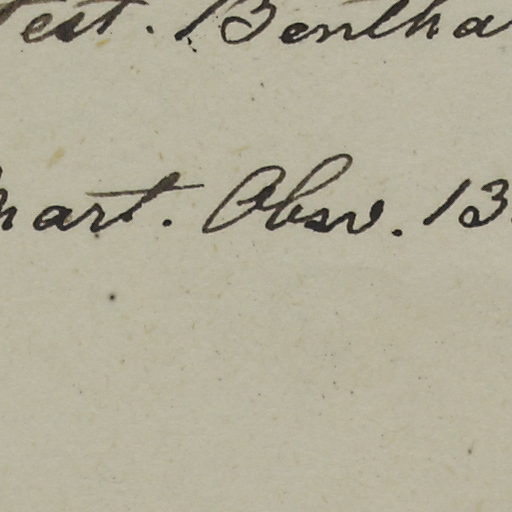 est. Bentha
hart. Obsv. 13